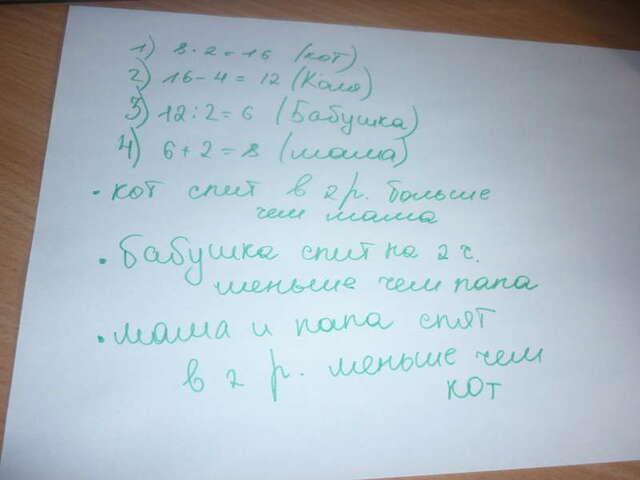 1) 8·2=16 (кот)
2) 16-4=12 (Коля)
3) 12:2=6 (Бабушка)
4) 6+2=8 (мама)
· кот спит в 2 р. больше
чем мама
· Бабушка спит на 2 ч.
меньше чем папа
· мама и папа спят
в 2 р. меньше чем
кот